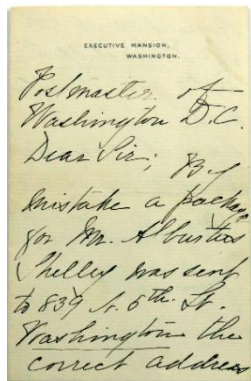 EXECUTIVE MANSION,
WASHINGTON.
Postmaster of
Washington D.C.
Dear Sir; By
mistake a package
for Mr. Albustus
Shelley was sent
to 839 N. 6th. St.
Washington the
correct address